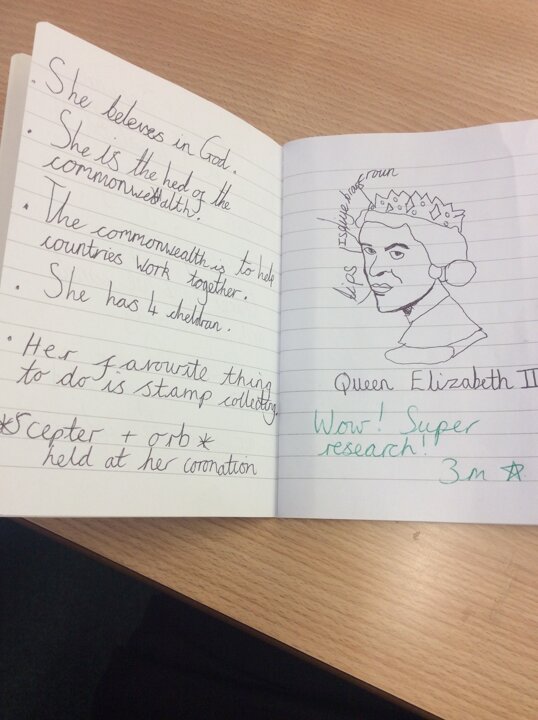 • She beleves in God.
• She is the hed of the
commonwealth.
• The commonwealth is to help
countries work together.
• She has 4 cheldran.
• Her favourite thing
to do is stamp collecting.
*Scepter + orb *
held at her coronation
croun
lips
Queen Elizabeth II
Wow! Super
research!
3m ☆